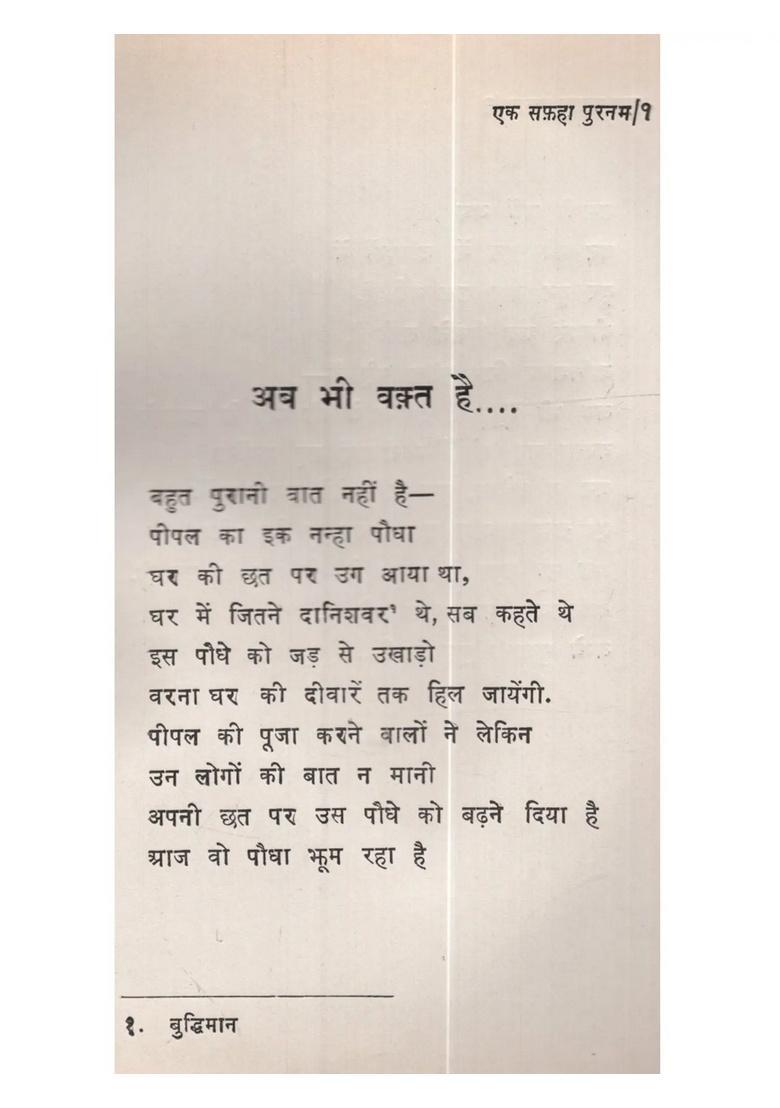 एक सफ़हा पुरनम/१
अब भी वक़्त है....
बहुत पुरानी बात नहीं है—
पीपल का इक नन्हा पौधा
घर की छत पर उग आया था,
घर में जितने दानिशवर¹ थे, सब कहते थे
इस पौधे को जड़ से उखाड़ो
वरना घर की दीवारें तक हिल जायेंगी.
पीपल की पूजा करने वालों ने लेकिन
उन लोगों की बात न मानी
अपनी छत पर उस पौधे को बढ़ने दिया है
आज वो पौधा झूम रहा है
१. बुद्धिमान